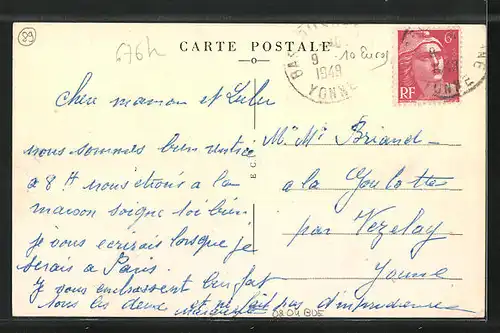 89
676h
CARTE POSTALE
9
1949
YONNE
10 Euros
6F
RF
Cher maman et Lulu
nous sommes bien rentrés
a 8 H nous étions a la
maison soigne toi bien
je vous ecrirais lorsque je
serais a Paris.
Je vous embrassent bien fort
tous les deux et ne fait pas d'imprudence
Mr Mme Briand
a la Goulotte
par Vezelay
Yonne